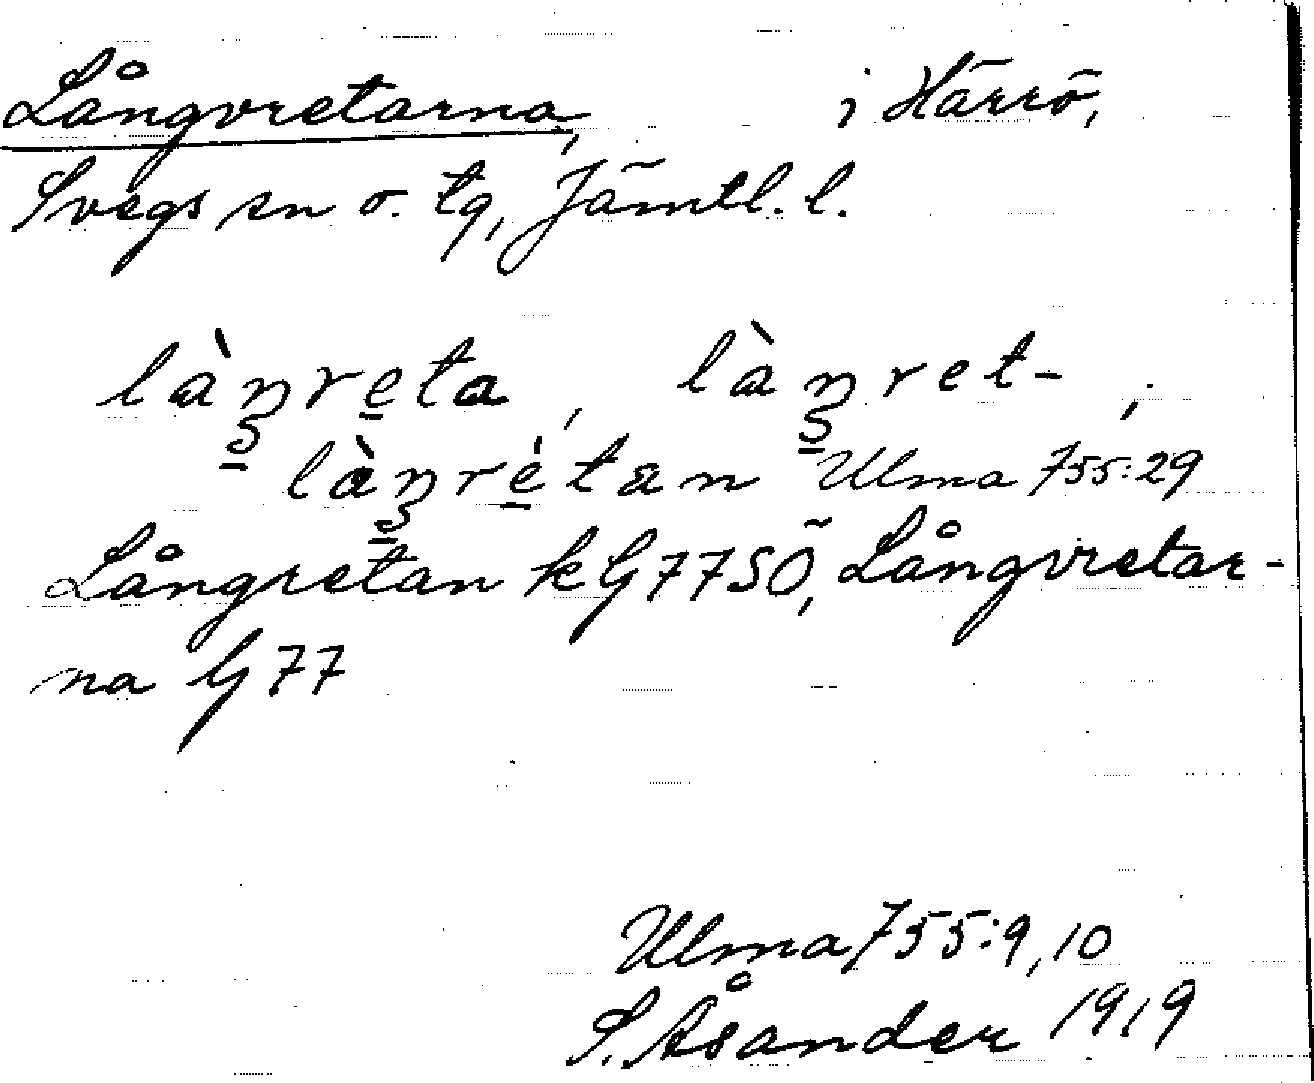 Långvretarna, i Härrö,
Svegs sn o. tg, Jämtl. l.
làŋreta, làŋret-,
làŋrètan Ulma 755:29
Långretan kG77SÖ, Långvretar-
na G77
Ulma 755:9,10
S. Åsander 1919